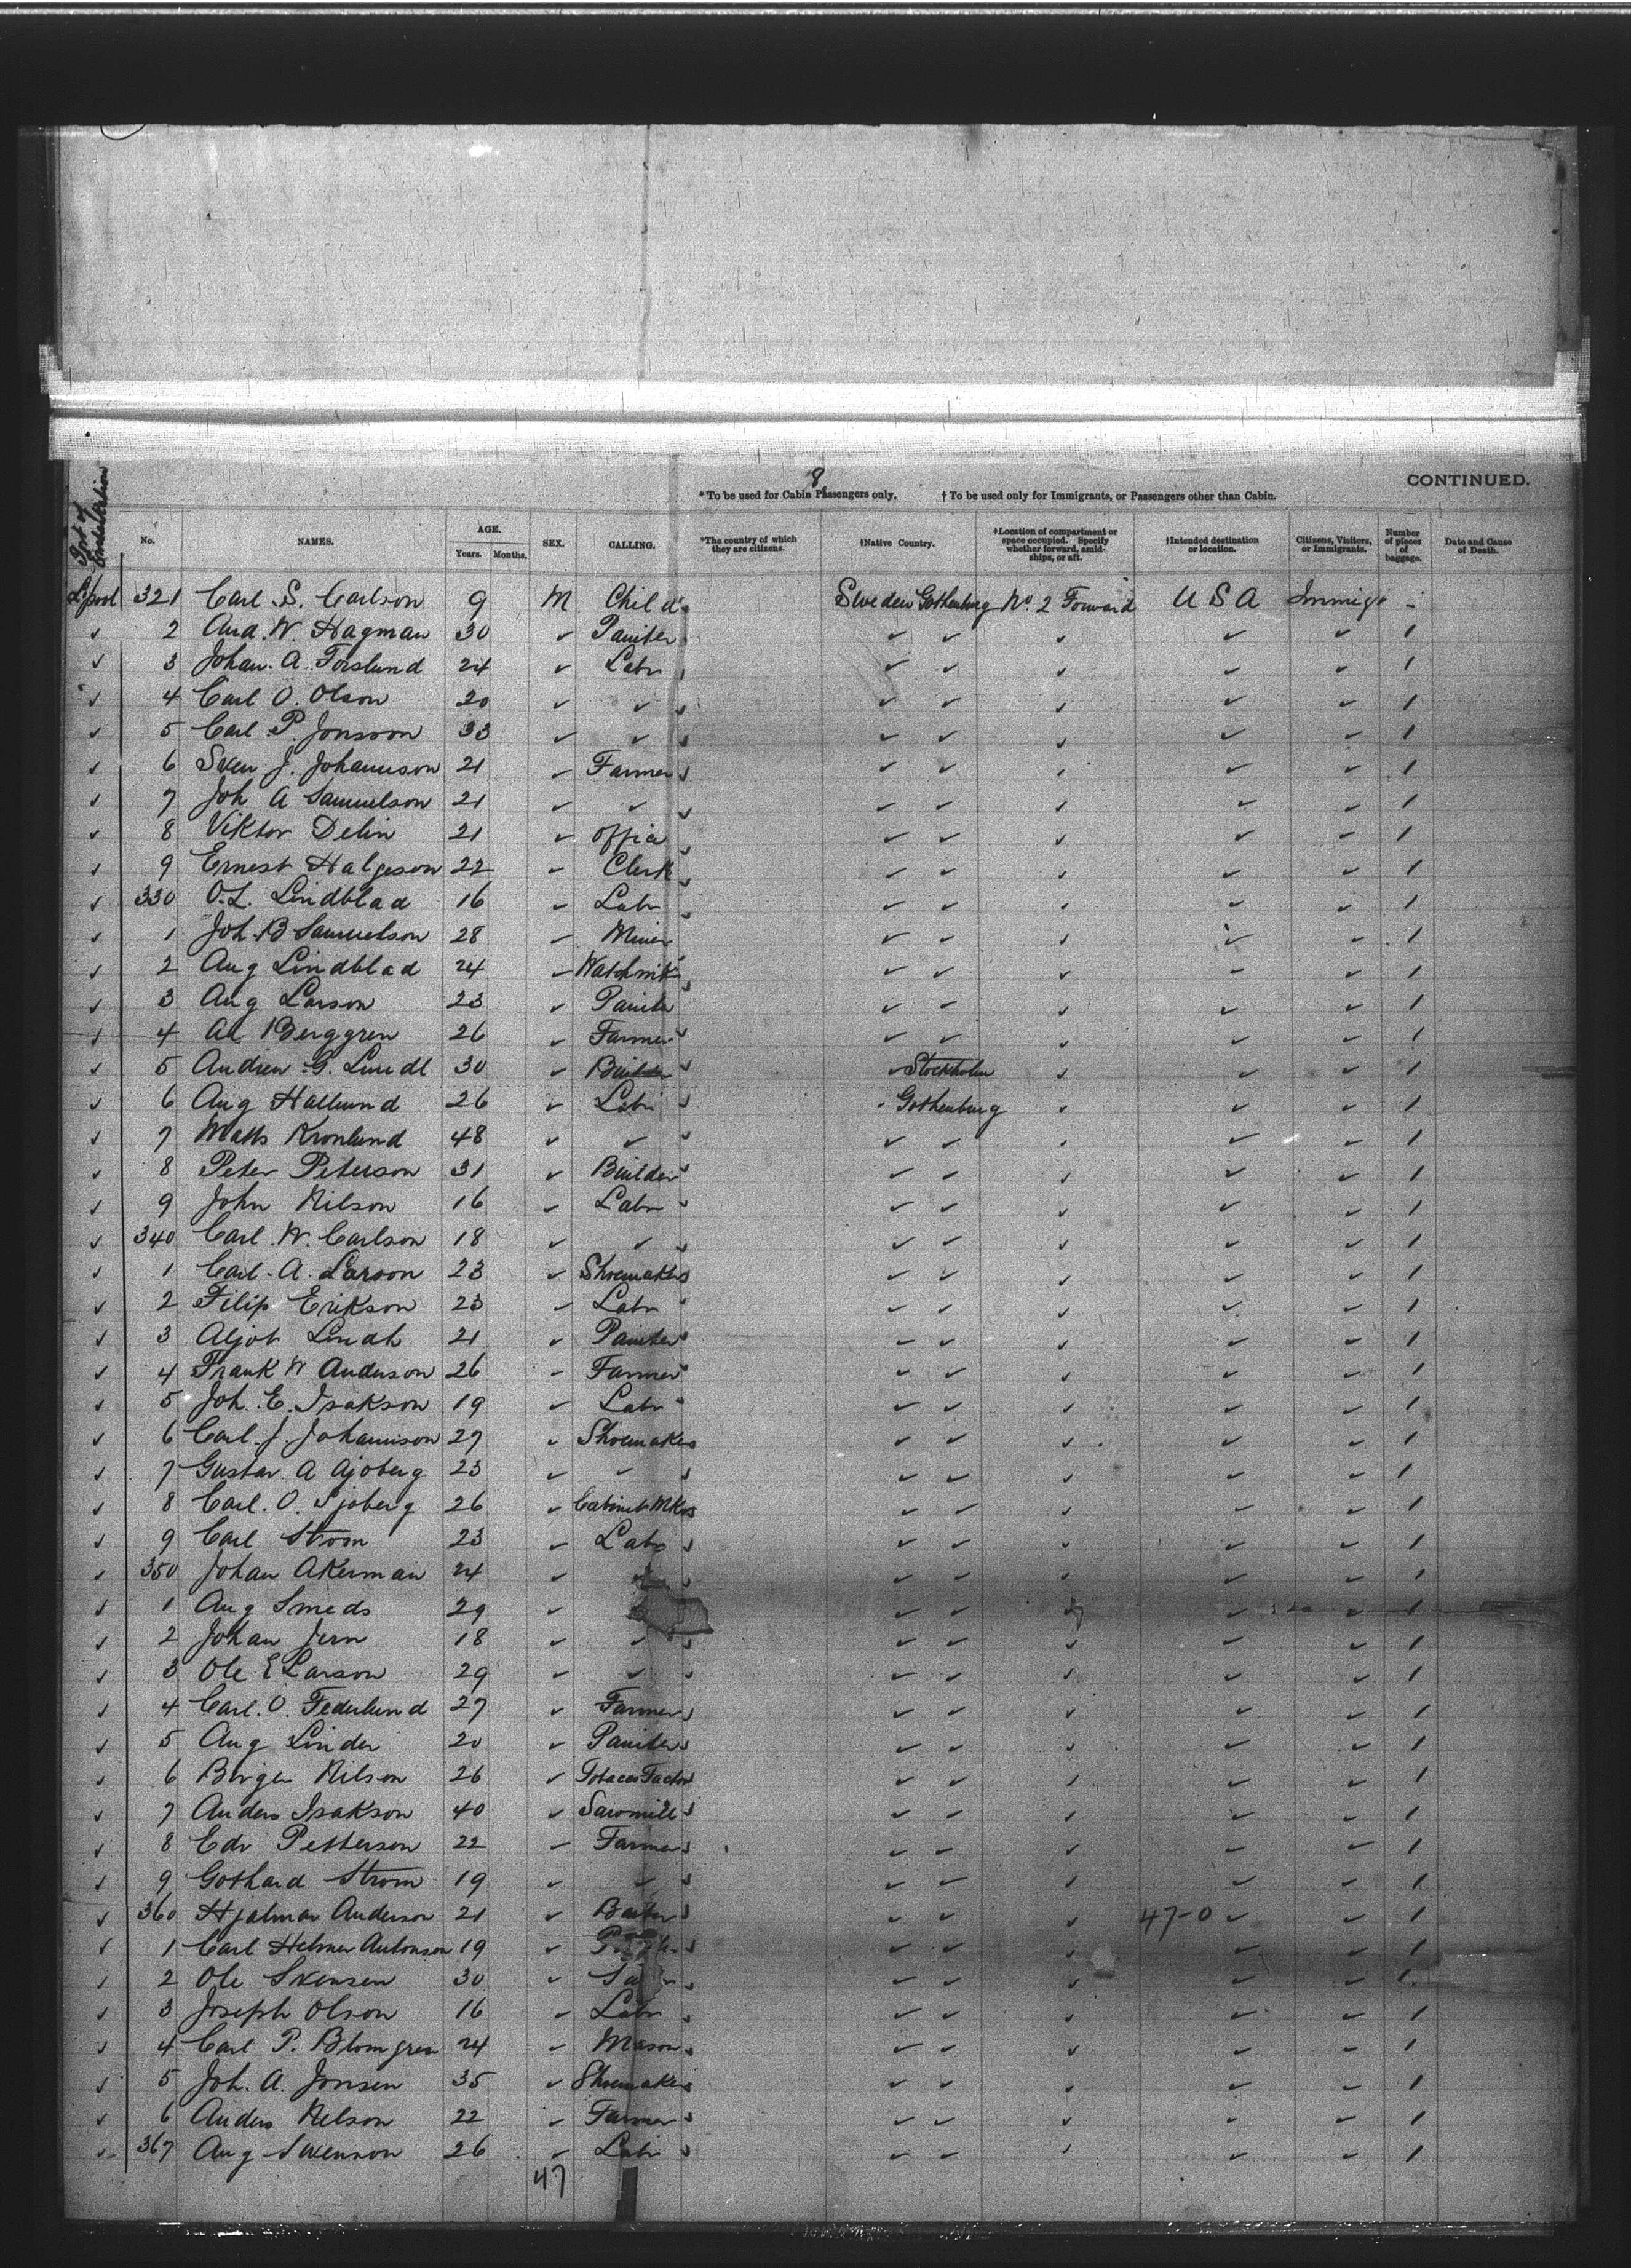 8
CONTINUED.
* To be used for Cabin Passengers only. † To be used only for Immigrants, or Passengers other than Cabin.
Port of Embarkation No. NAMES. AGE. Years. Months. SEX. CALLING. *The country of which they are citizens. †Native Country. †Location of compartment or space occupied. Specify whether forward, amidships, or aft. †Intended destination or location. Citizens, Visitors, or Immigrants. Number of pieces of baggage. Date and Cause of Death.
L'pool 321 Carl S. Carlson 9 M Child Sweden Gothenburg No. 2 Forward U S A Immigr -
✓ 2 And. W. Hagman 30 ✓ Painter ✓ ✓ ✓ ✓ ✓ 1
✓ 3 Johan. A. Forslund 24 ✓ Labr ✓ ✓ ✓ ✓ ✓ 1
✓ 4 Carl O. Olson 20 ✓ ✓ ✓ ✓ ✓ ✓ ✓ 1
✓ 5 Carl P. Jonsson 33 ✓ ✓ ✓ ✓ ✓ ✓ ✓ 1
✓ 6 Sven J. Johannson 21 ✓ Farmer ✓ ✓ ✓ ✓ ✓ 1
✓ 7 Joh A Samuelson 21 ✓ ✓ ✓ ✓ ✓ ✓ ✓ 1
✓ 8 Viktor Delin 21 ✓ ✓ ✓ ✓ ✓ ✓ 1
✓ 9 Ernest Halgeson 22 ✓ Clerk ✓ ✓ ✓ ✓ ✓ 1
✓ 330 O. L. Lindblad 16 ✓ Labr ✓ ✓ ✓ ✓ ✓ 1
✓ 1 Joh. B Samuelson 28 ✓ Miner ✓ ✓ ✓ ✓ ✓ 1
✓ 2 Aug Lindblad 24 ✓ ✓ ✓ ✓ ✓ ✓ 1
✓ 3 Aug Larson 23 ✓ Painter ✓ ✓ ✓ ✓ ✓ 1
✓ 4 Al Berggren 26 ✓ Farmer ✓ ✓ ✓ ✓ ✓ 1
✓ 5 Andrew G. 30 ✓ Builder ✓ Stockholm ✓ ✓ ✓ 1
✓ 6 Aug Hallund 26 ✓ Labr Gothenburg ✓ ✓ ✓ 1
✓ 7 Matts Kronlund 48 ✓ ✓ ✓ ✓ ✓ ✓ ✓ 1
✓ 8 Peter Peterson 31 ✓ Builder ✓ ✓ ✓ ✓ ✓ 1
✓ 9 John Nilson 16 ✓ Labr ✓ ✓ ✓ ✓ ✓ 1
✓ 340 Carl. W. Carlson 18 ✓ ✓ ✓ ✓ ✓ ✓ ✓ 1
✓ 1 Carl. A. Larson 23 ✓ Shoemaker ✓ ✓ ✓ ✓ ✓ 1
✓ 2 Filip Erikson 23 ✓ Labr ✓ ✓ ✓ ✓ ✓ 1
✓ 3 Aljot Lindh 21 ✓ Painter ✓ ✓ ✓ ✓ ✓ 1
✓ 4 Frank W Anderson 26 ✓ Farmer ✓ ✓ ✓ ✓ ✓ 1
✓ 5 Joh. E. Isakson 19 ✓ Labr ✓ ✓ ✓ ✓ ✓ 1
✓ 6 Carl. J. Johannison 27 ✓ Shoemaker ✓ ✓ ✓ ✓ ✓ 1
✓ 7 Gustav. A Ajoberg 23 ✓ ✓ ✓ ✓ ✓ ✓ ✓ 1
✓ 8 Carl. O. Sjoberg 26 ✓ Cabinet Mkr ✓ ✓ ✓ ✓ ✓ 1
✓ 9 Carl Strom 23 ✓ Labr ✓ ✓ ✓ ✓ ✓ 1
✓ 350 Johan Akerman 24 ✓ ✓ ✓ ✓ ✓ ✓ 1
✓ 1 Aug Smeds 29 ✓ ✓ ✓ ✓ ✓ ✓ 1
✓ 2 Johan Jern 18 ✓ ✓ ✓ ✓ ✓ ✓ ✓ 1
✓ 3 Ole E Larson 29 ✓ ✓ ✓ ✓ ✓ ✓ ✓ 1
✓ 4 Carl. O. Federlund 27 ✓ Farmer ✓ ✓ ✓ ✓ ✓ 1
✓ 5 Aug Linder 20 ✓ Painter ✓ ✓ ✓ ✓ ✓ 1
✓ 6 Birger Nilson 26 ✓ Tobacco Factor ✓ ✓ ✓ ✓ ✓ 1
✓ 7 Anders Isakson 40 ✓ Sawmill ✓ ✓ ✓ ✓ ✓ 1
✓ 8 Edv Petterson 22 ✓ Farmer ✓ ✓ ✓ ✓ ✓ 1
✓ 9 Gothard Strom 19 ✓ ✓ ✓ ✓ ✓ ✓ ✓ 1
✓ 360 Hjalmar Anderson 21 ✓ ✓ ✓ ✓ 47-0 ✓ ✓ 1
✓ 1 Carl Helmer Antonson 19 ✓ ✓ ✓ ✓ ✓ ✓ 1
✓ 2 Ole Svensen 30 ✓ ✓ ✓ ✓ ✓ ✓ 1
✓ 3 Joseph Olson 16 ✓ Labr ✓ ✓ ✓ ✓ ✓ 1
✓ 4 Carl P. Blomgren 24 ✓ Mason ✓ ✓ ✓ ✓ ✓ 1
✓ 5 Joh. A. Jonsen 35 ✓ Shoemaker ✓ ✓ ✓ ✓ ✓ 1
✓ 6 Anders Nelson 22 ✓ Farmer ✓ ✓ ✓ ✓ ✓ 1
✓ 367 Aug Swenson 26 ✓ Labr ✓ ✓ ✓ ✓ ✓ 1
47